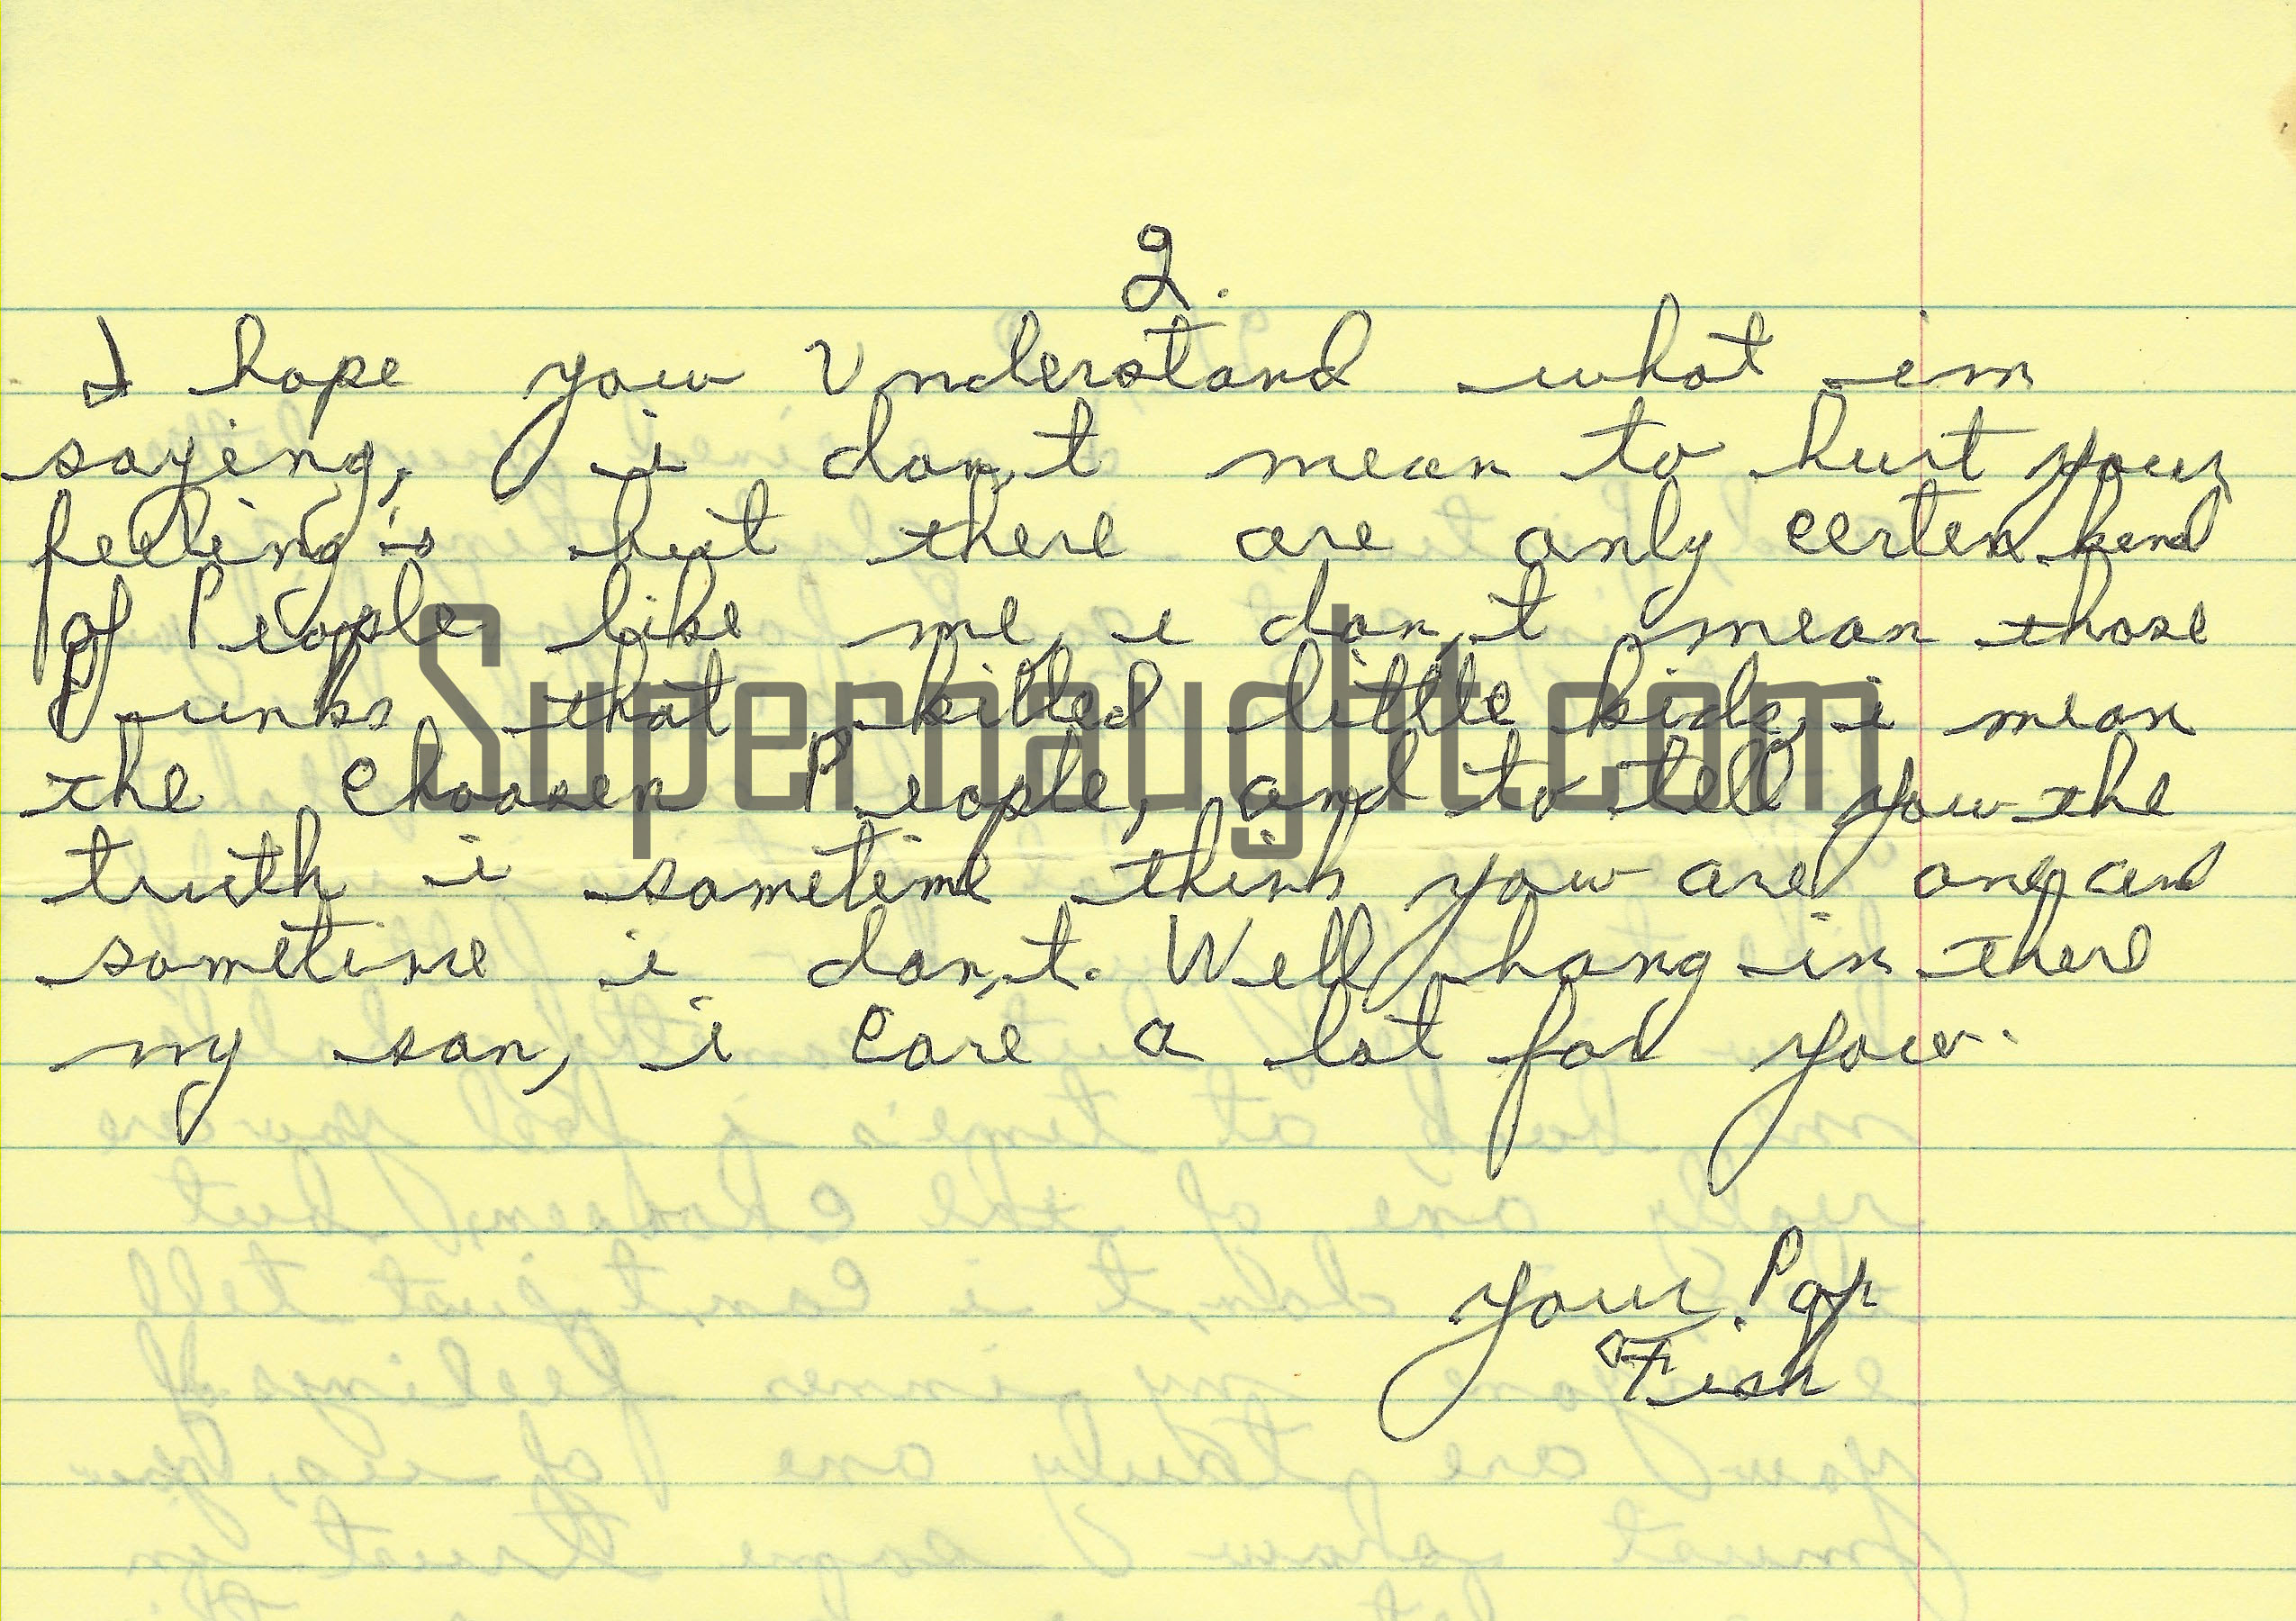 2.
I hope you Understand what im
saying, i don,t mean to hurt your
feeling's but there are only certen kend
of People like me, i don,t mean those
Punks that killed little kids, i mean
the choosen People, and to tell you the
truth i sometime think you are one, and
sometime i don,t. Well hang in there
my son, i care a lot for you.
your Pop
Fish
Supernaught.com